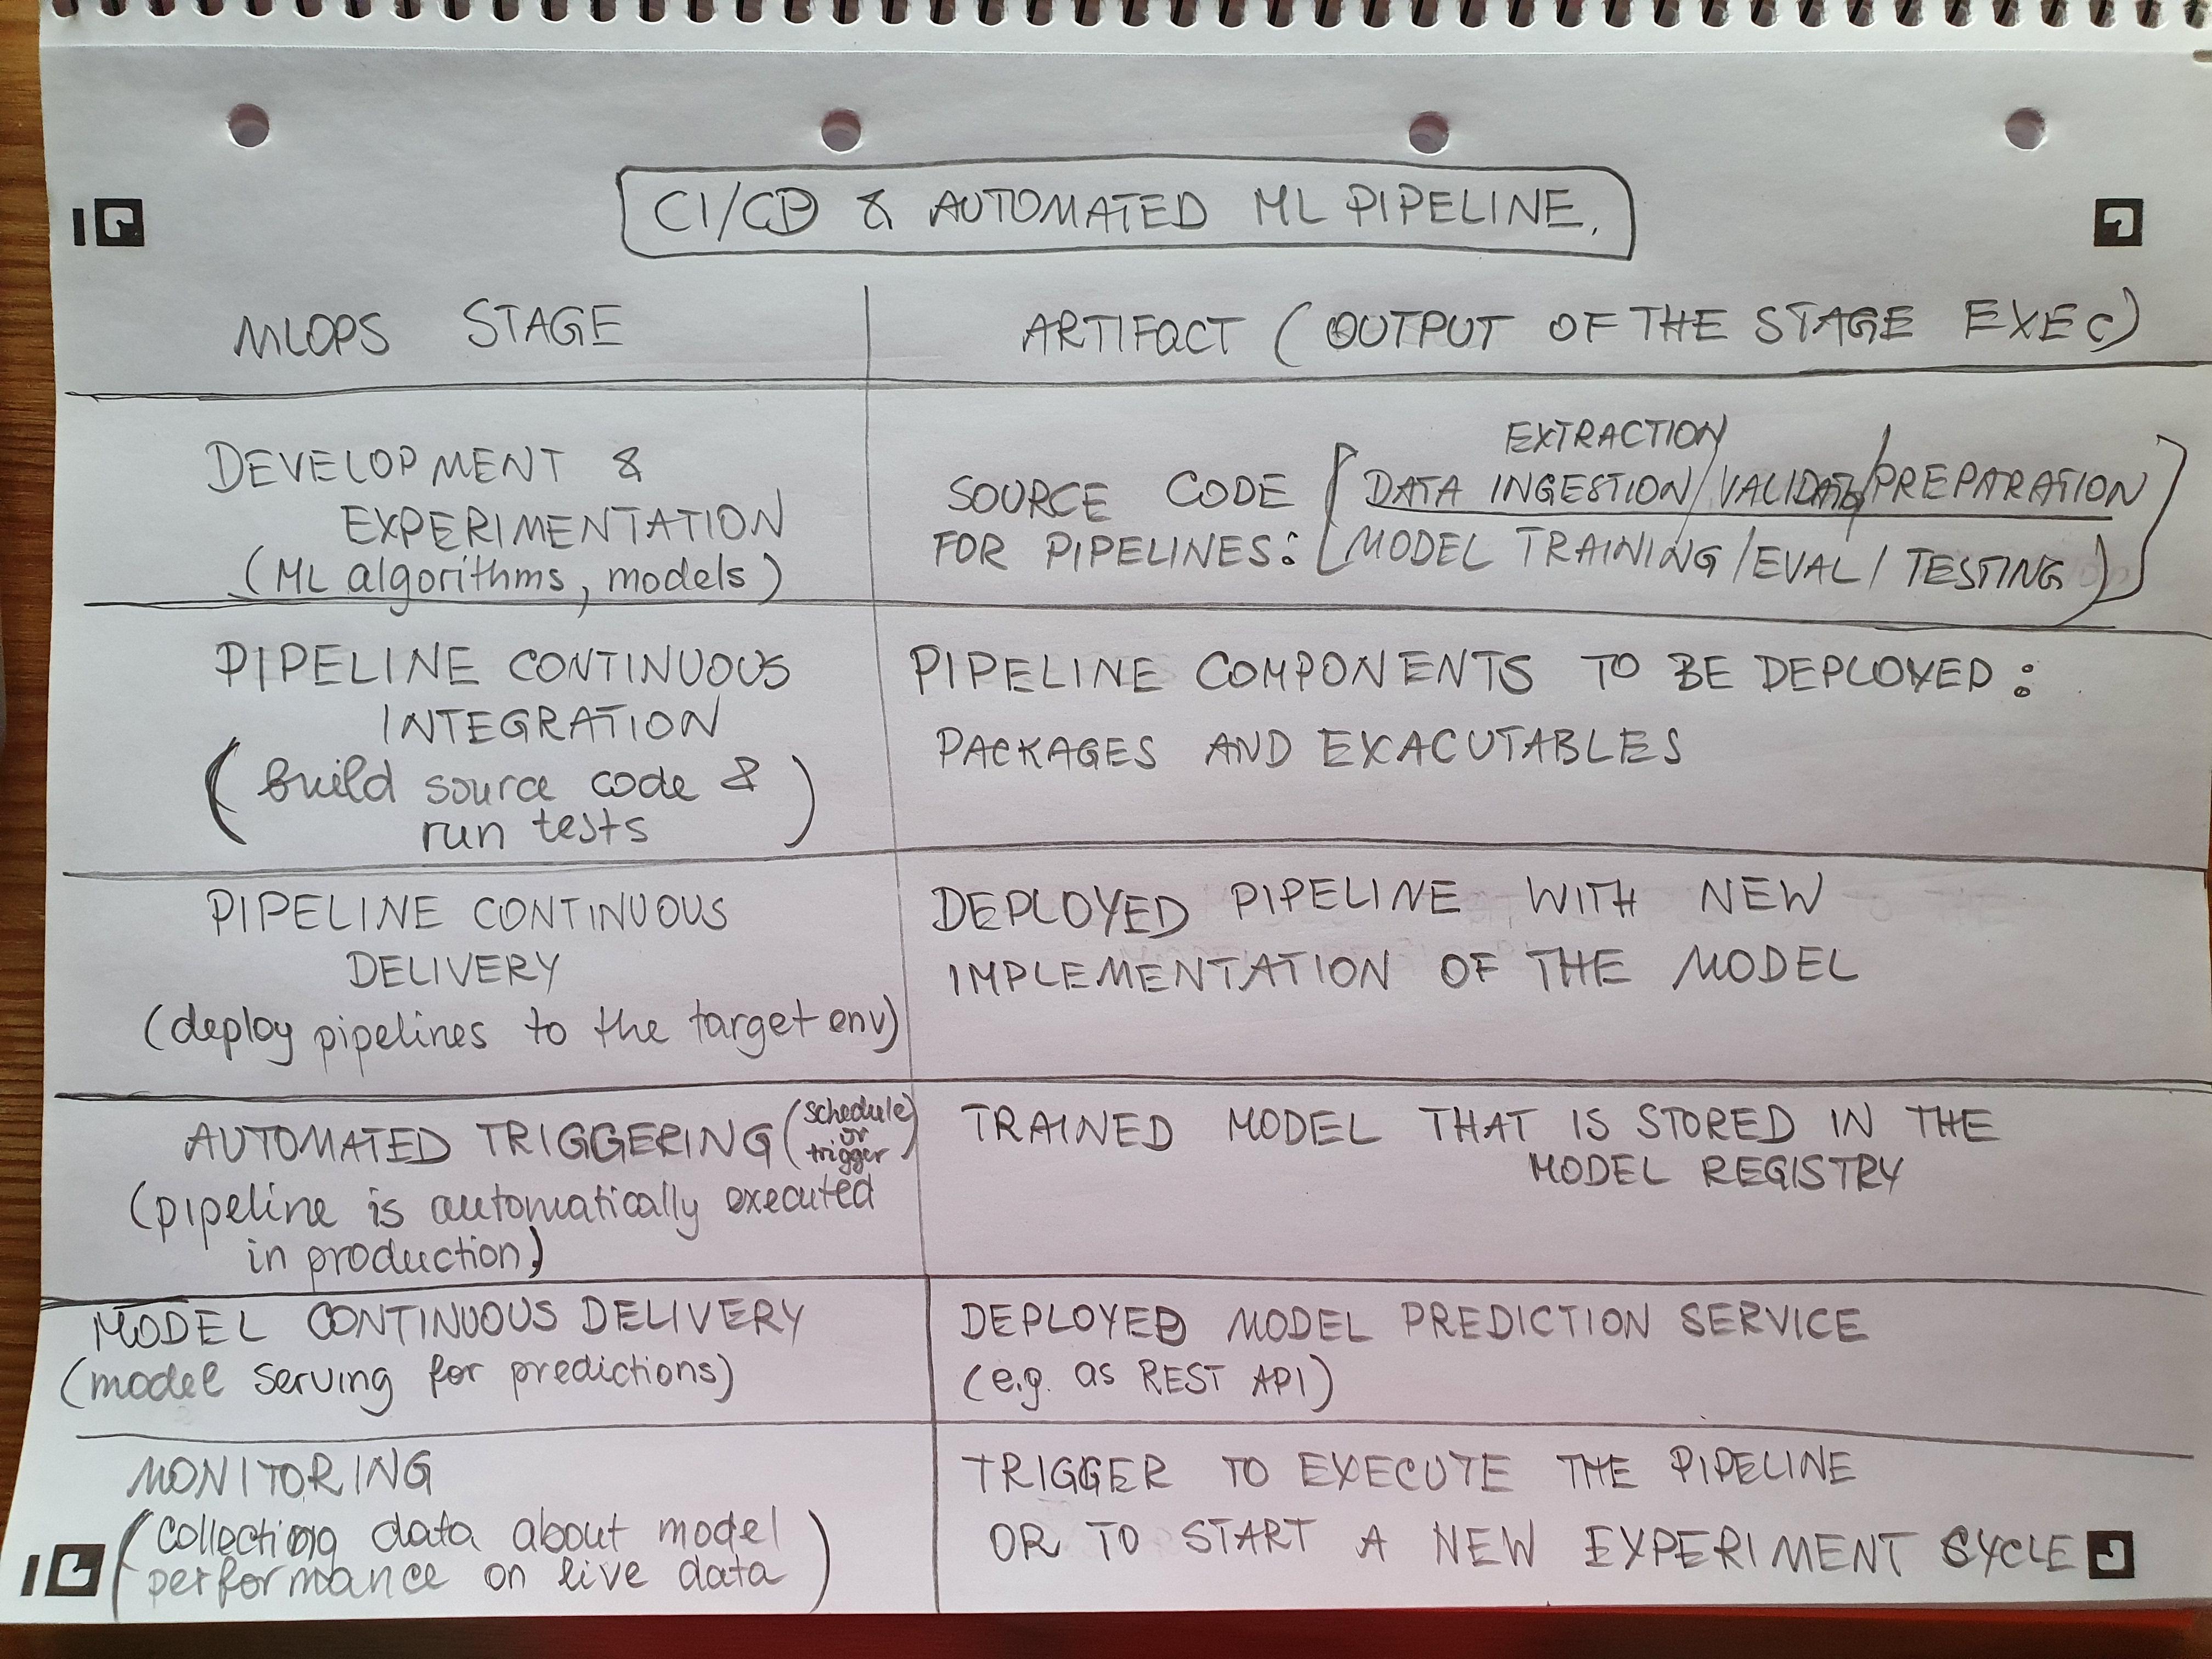 CI/CD & AUTOMATED ML PIPELINE.
MLOPS STAGE
ARTIFACT (OUTPUT OF THE STAGE EXEC)
DEVELOPMENT &
EXPERIMENTATION
(ML algorithms, models)
EXTRACTION
SOURCE CODE [DATA INGESTION/VALIDATIO/PREPARATION
FOR PIPELINES: MODEL TRAINING/EVAL/TESTING)]
PIPELINE CONTINUOUS
INTEGRATION
(build source code &
run tests)
PIPELINE COMPONENTS TO BE DEPLOYED:
PACKAGES AND EXACUTABLES
PIPELINE CONTINUOUS
DELIVERY
(deploy pipelines to the target env)
DEPLOYED PIPELINE WITH NEW
IMPLEMENTATION OF THE MODEL
AUTOMATED TRIGGERING (schedule
or
trigger)
(pipeline is automatically executed
in production)
TRAINED MODEL THAT IS STORED IN THE
MODEL REGISTRY
MODEL CONTINUOUS DELIVERY
(model serving for predictions)
DEPLOYED MODEL PREDICTION SERVICE
(e.g. as REST API)
MONITORING
(collecting data about model
performance on live data)
TRIGGER TO EXECUTE THE PIPELINE
OR TO START A NEW EXPERIMENT CYCLE